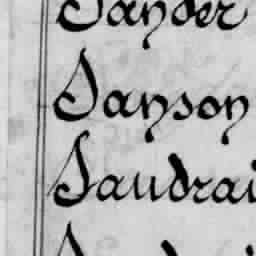 Sander
Sanson
Saudrai